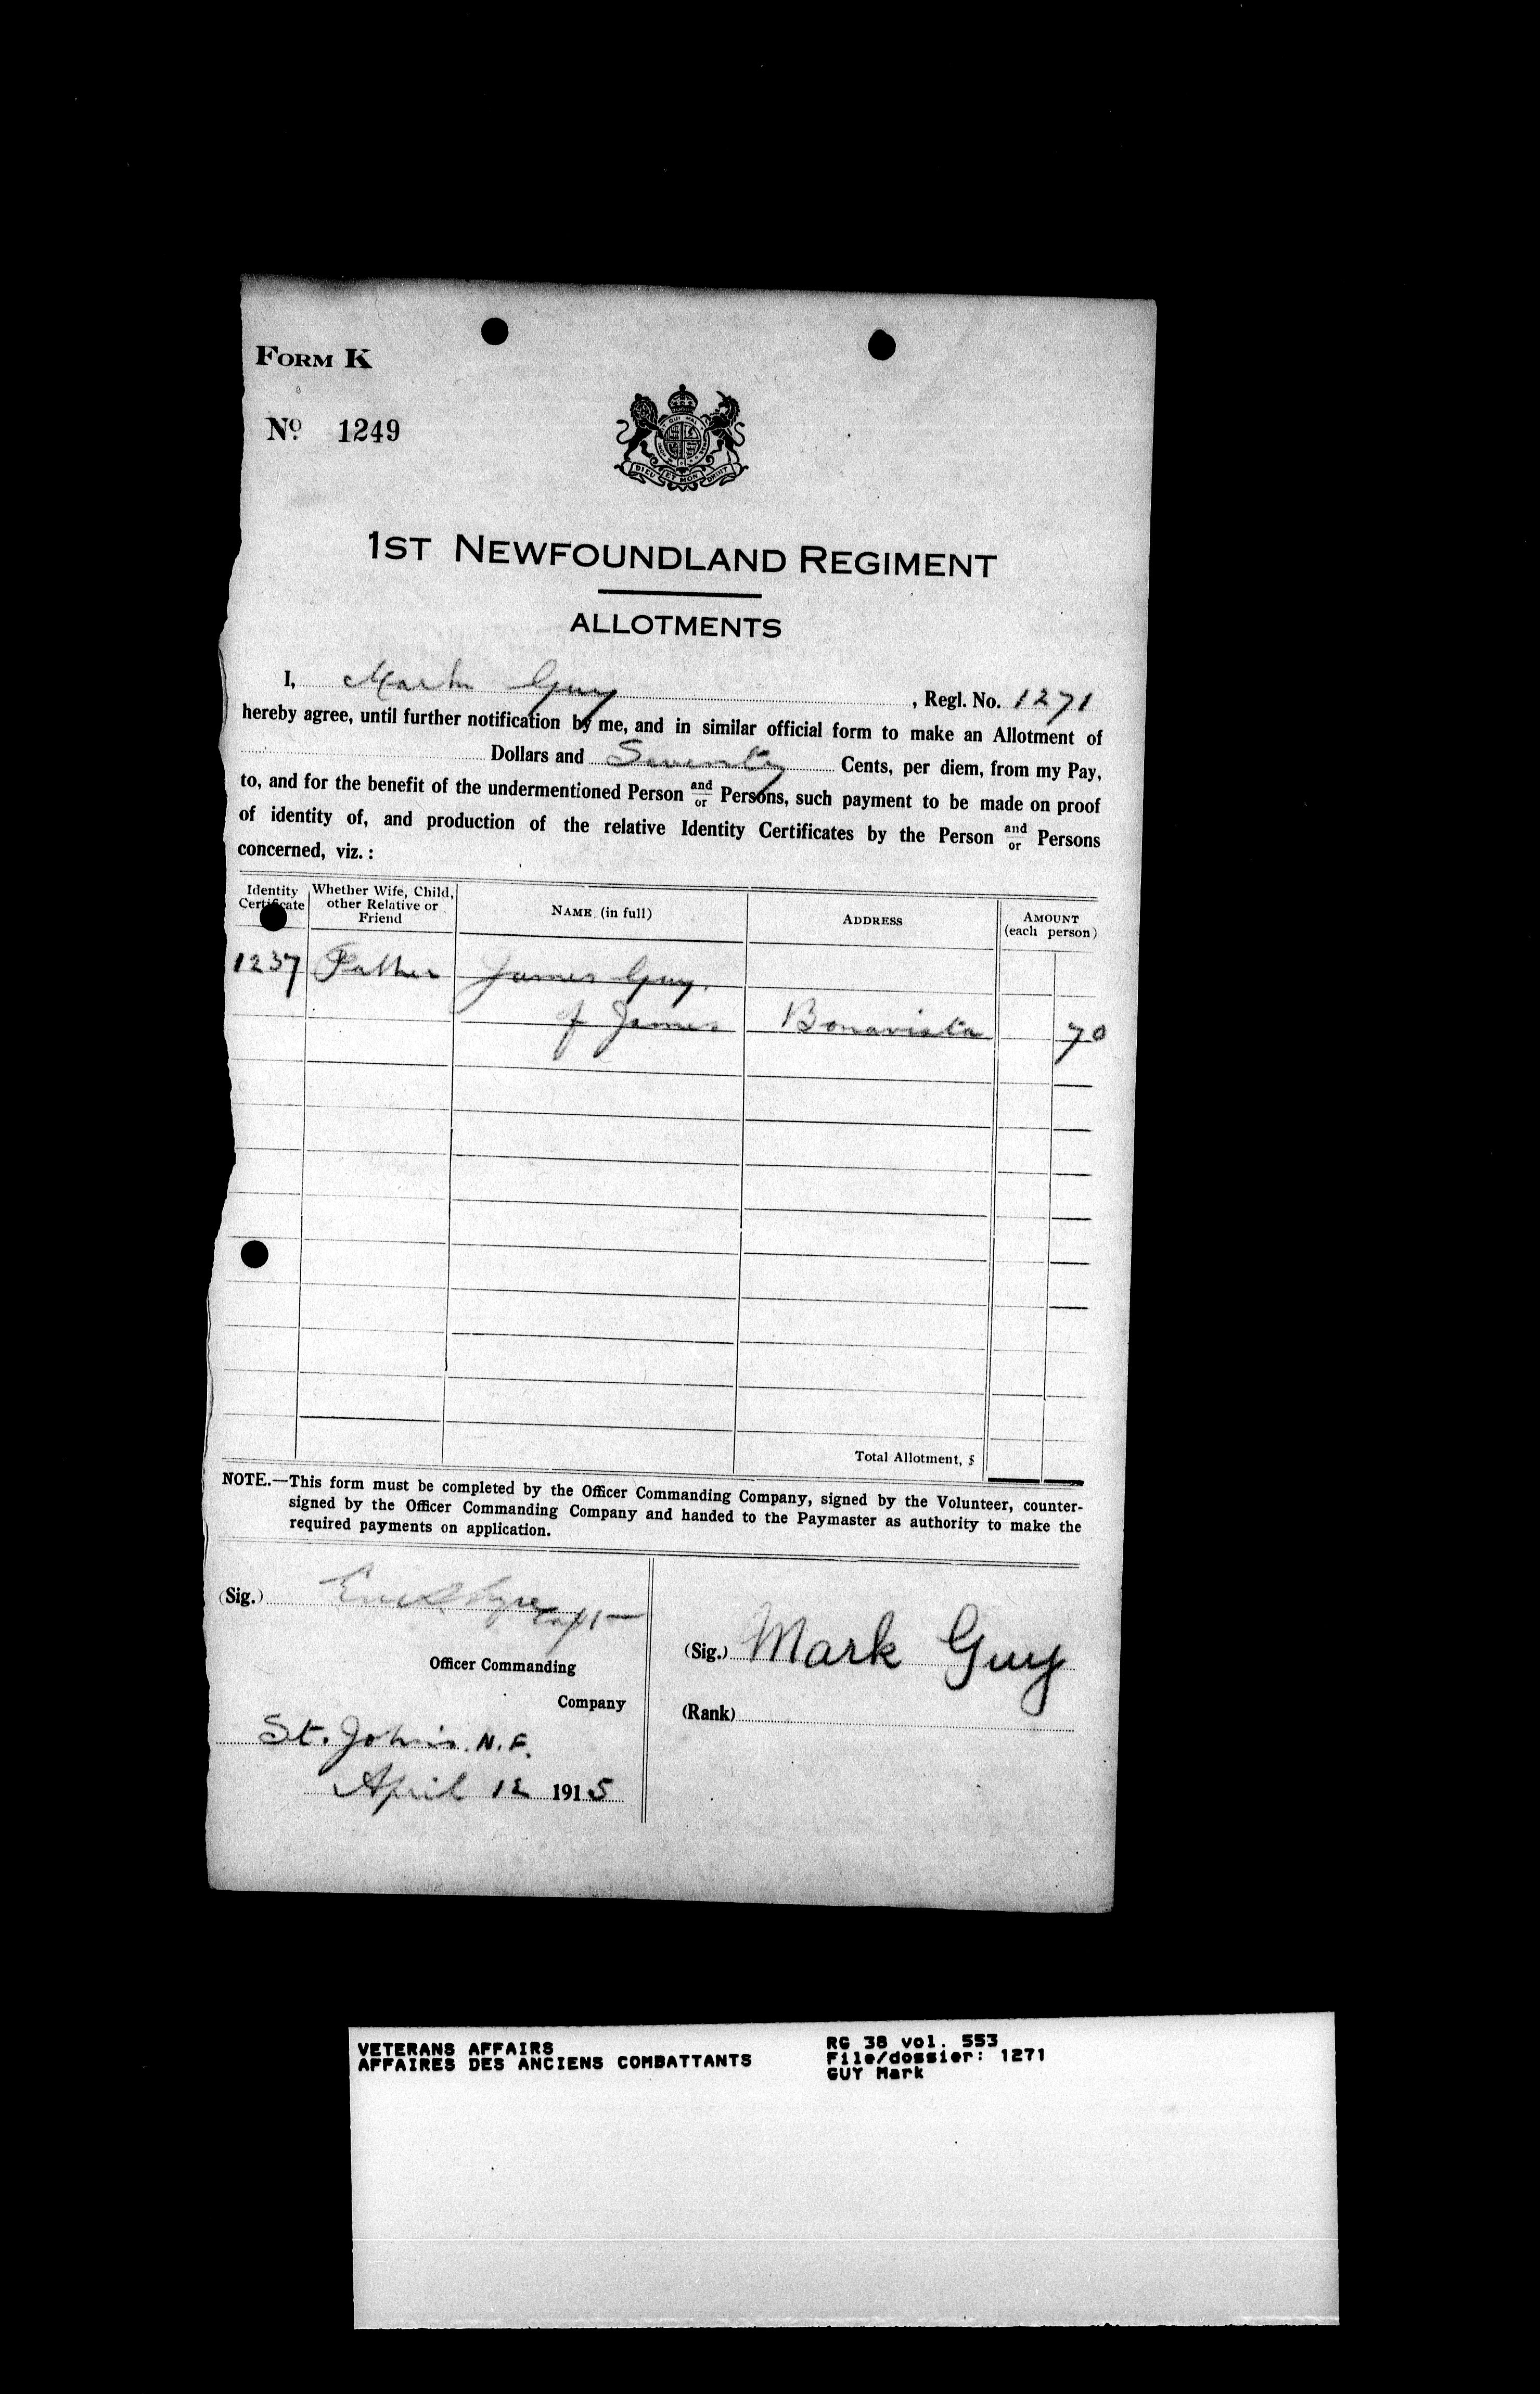 FORM K
No. 1249
DIEU ET MON DROIT
1ST NEWFOUNDLAND REGIMENT
ALLOTMENTS
I, Mark Guy, Regl. No. 1271
hereby agree, until further notification by me, and in similar official form to make an Allotment of
Dollars and Seventy Cents, per diem, from my Pay,
to, and for the benefit of the undermentioned Person and/or Persons, such payment to be made on proof
of identity of, and production of the relative Identity Certificates by the Person and/or Persons
concerned, viz. :
Identity Certificate | Whether Wife, Child, other Relative or Friend | NAME (in full) | ADDRESS | AMOUNT (each person)
1237 Father James Guy.
of James Bonavista 70
Total Allotment, $
NOTE.—This form must be completed by the Officer Commanding Company, signed by the Volunteer, counter-
signed by the Officer Commanding Company and handed to the Paymaster as authority to make the
required payments on application.
(Sig.) Capt
Officer Commanding
Company
St. John's. N.F.
April 12 1915
(Sig.) Mark Guy
(Rank)
VETERANS AFFAIRS
AFFAIRES DES ANCIENS COMBATTANTS
RG 38 vol. 553
File/dossier: 1271
GUY Mark